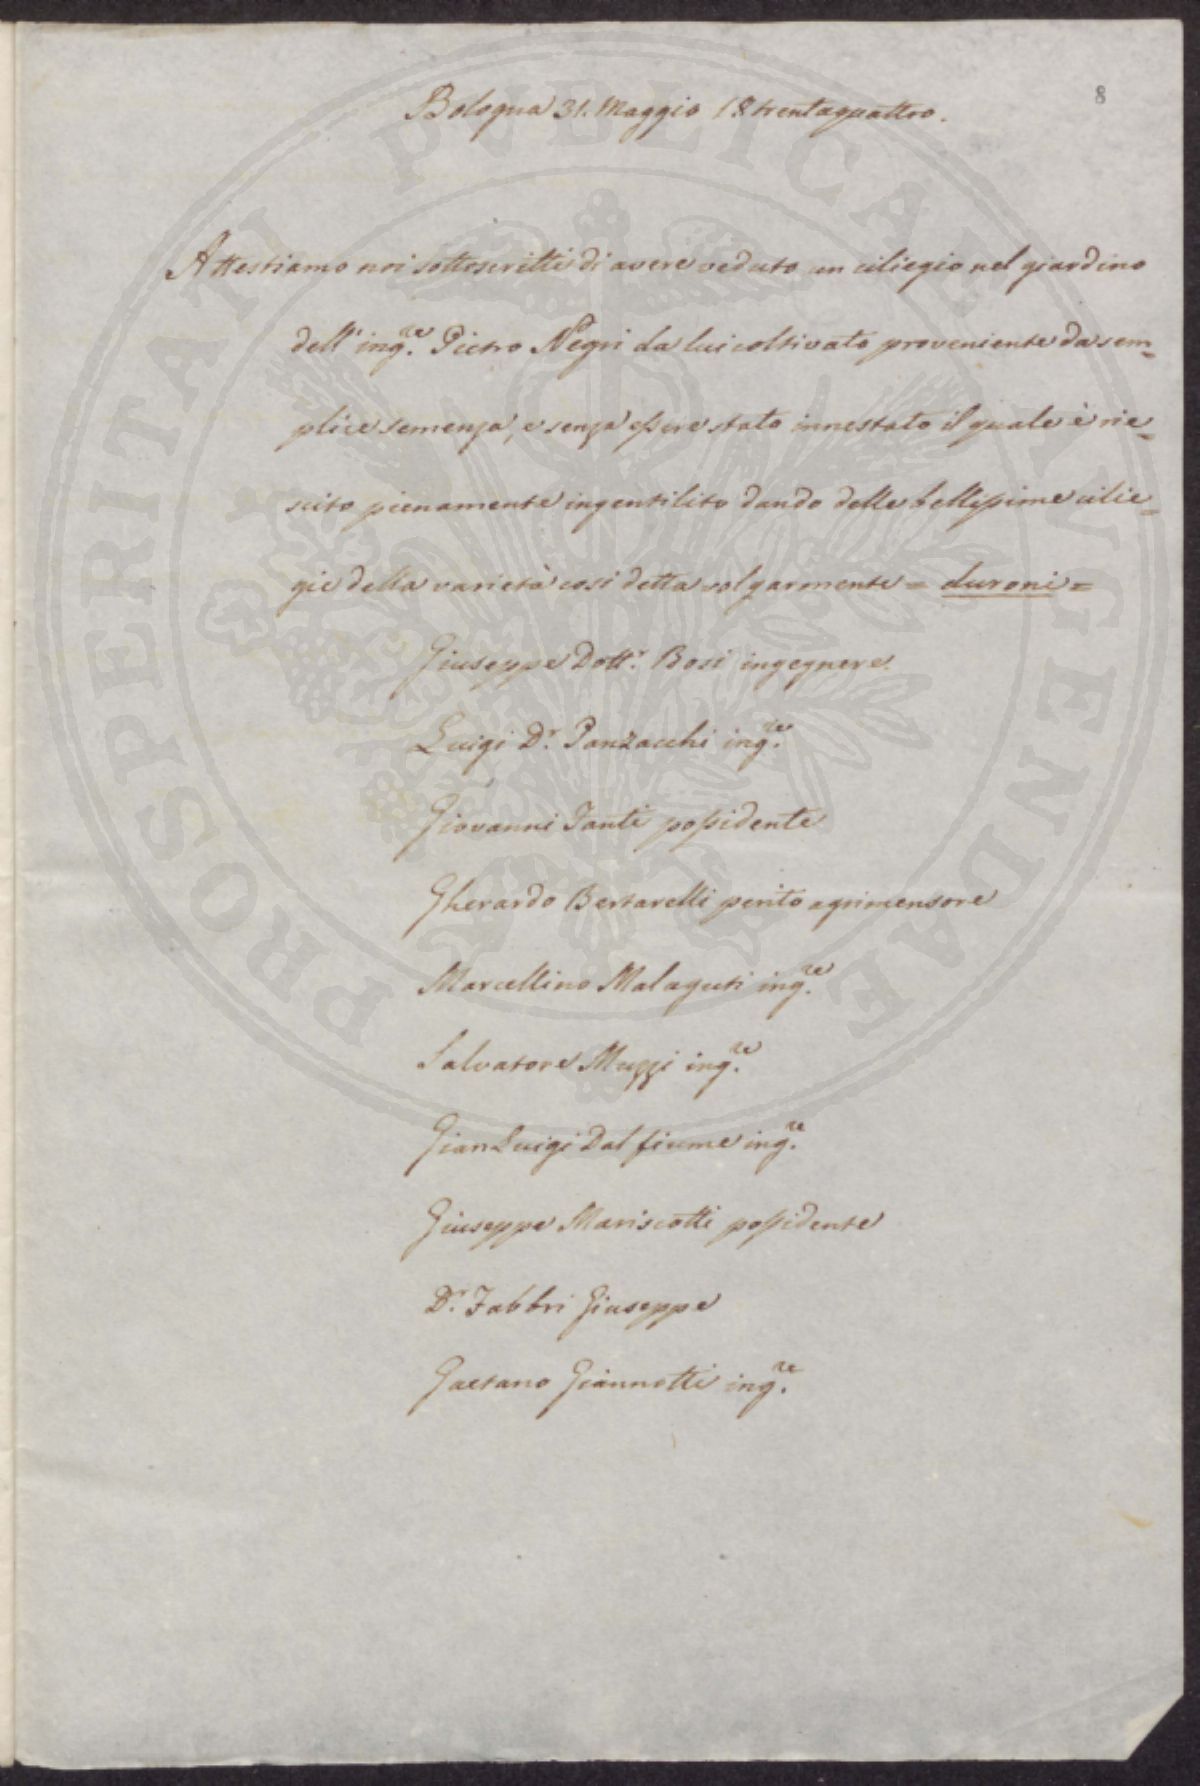 8
Bologna 31. Maggio 18trentaquattro.
Attestiamo noi sottoscritti di avere veduto un ciliegio nel giardino
dell' ing.re Pietro Negri da lui coltivato proveniente da sem=
plice semenza, e senza essere stato innestato il quale è rie=
scito pienamente ingentilito dando delle bellissime cilie=
gie della varietà così detta volgarmente = duroni =
Giuseppe Dott.r Bosi ingegnere.
Luigi D.r Panzacchi ing.re
Giovanni Santi possidente
Gherardo Bertarelli perito agrimensore
Marcellino Malaguti ing.re
Salvatore Muzzi ing.re
Gian Luigi Dal fiume ing.re
Giuseppe Mariscotti possidente
D.r Fabbri Giuseppe
Gaetano Giannotti ing.re
PROSPERITATI PVBLICAE AVGENDAE